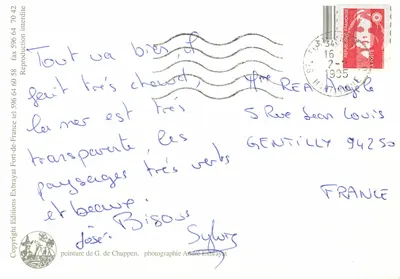 Tout va bien, il
fait très chaud,
la mer est très
transparente, les
paysages très verts
et beaux.
Bisous
José
Sylvie
Mme REA Angèle
5 Rue Jean Louis
GENTILLY 94250
FRANCE
16
7-
1995
Copyright Editions Exbrayat Fort-de-France tel 596 64 60 58 fax 596 64 70 42
Reproduction interdite
peinture de G. de Chappen. photographie André Exbrayat